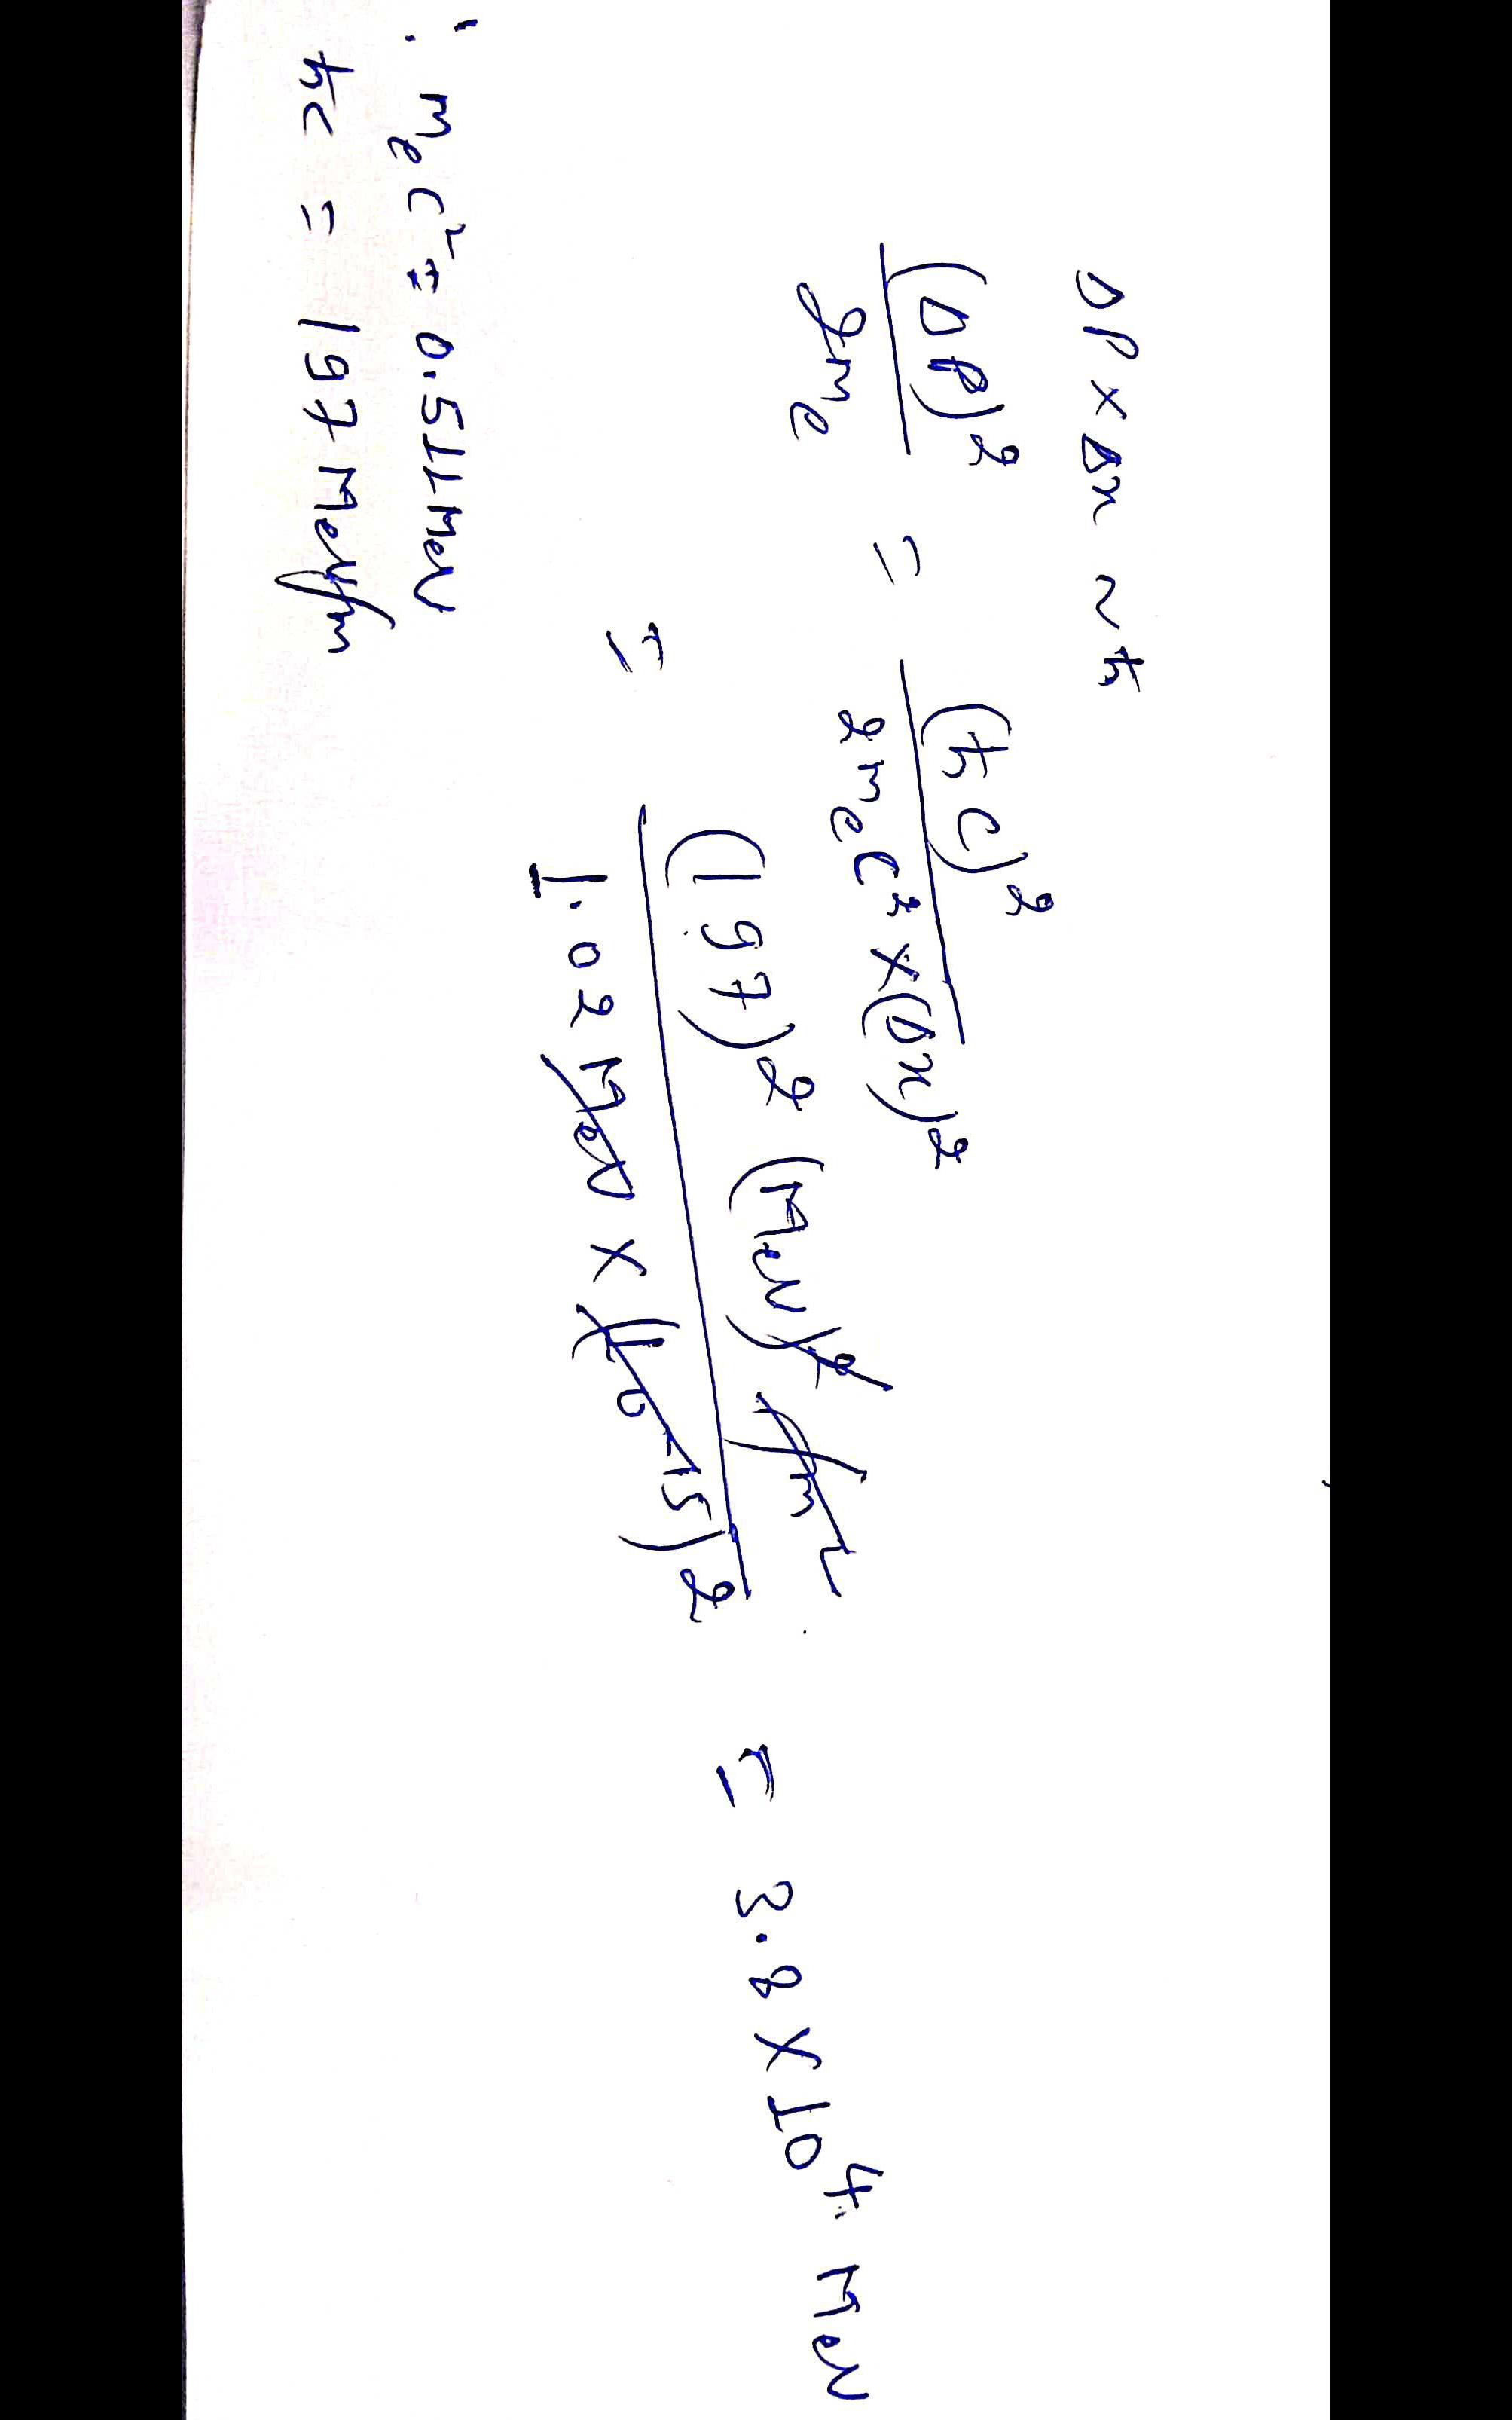 ΔP × Δx ~ ħ
(ΔP)² / 2mₑ = (ħc)² / 2mₑc² × (Δx)²
= (197)² (MeV)² fm² / 1.02 MeV × (10⁻¹⁵)² = 3.8 × 10⁴ MeV
∵ mₑc² = 0.511 MeV
ħc = 197 MeV fm